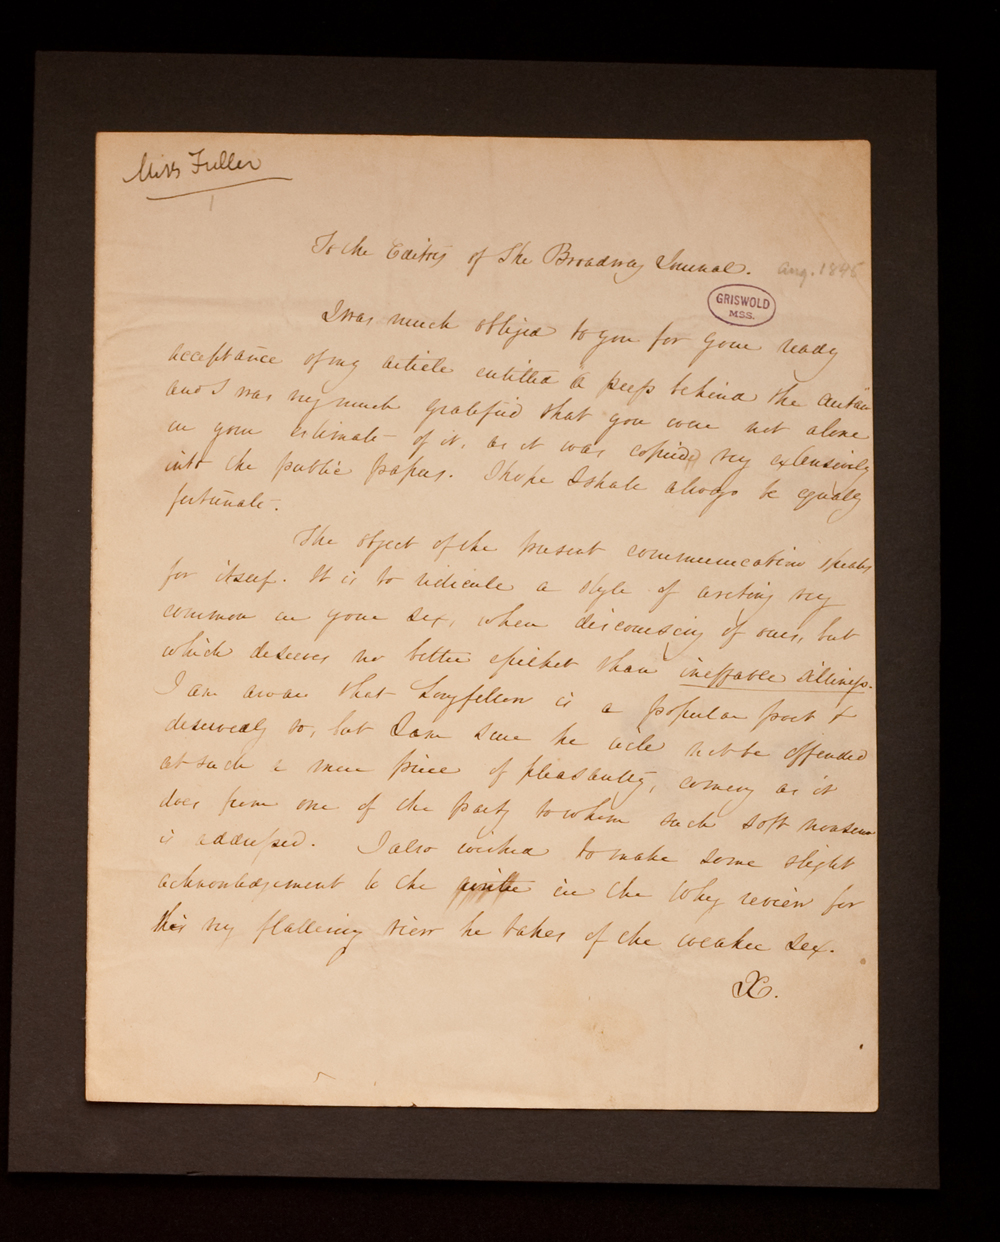 Miss Fuller
To the Editors of The Broadway Journal. Aug. 1845
GRISWOLD
MSS.
I was much obliged to you for your ready
acceptance of my article entitled a peep behind the curtain
and I was very much gratified that you were not alone
in your estimate of it, as it was copied very extensively
into the public papers. I hope I shall always be equally
fortunate.
The object of the present communication speaks
for itself. It is to ridicule a style of writing very
common in your sex, when discoursing of ours, but
which deserves no better epithet than ineffable silliness.
I am aware that Longfellow is a popular poet &
deservedly so, but I am sure he will not be offended
at such a mere piece of pleasantry, coming as it
does from one of the party to whom such soft nonsense
is addressed. I also wished to make some slight
acknowledgement to the in the Whig review for
this very flattering view he takes of the weaker sex.
X.